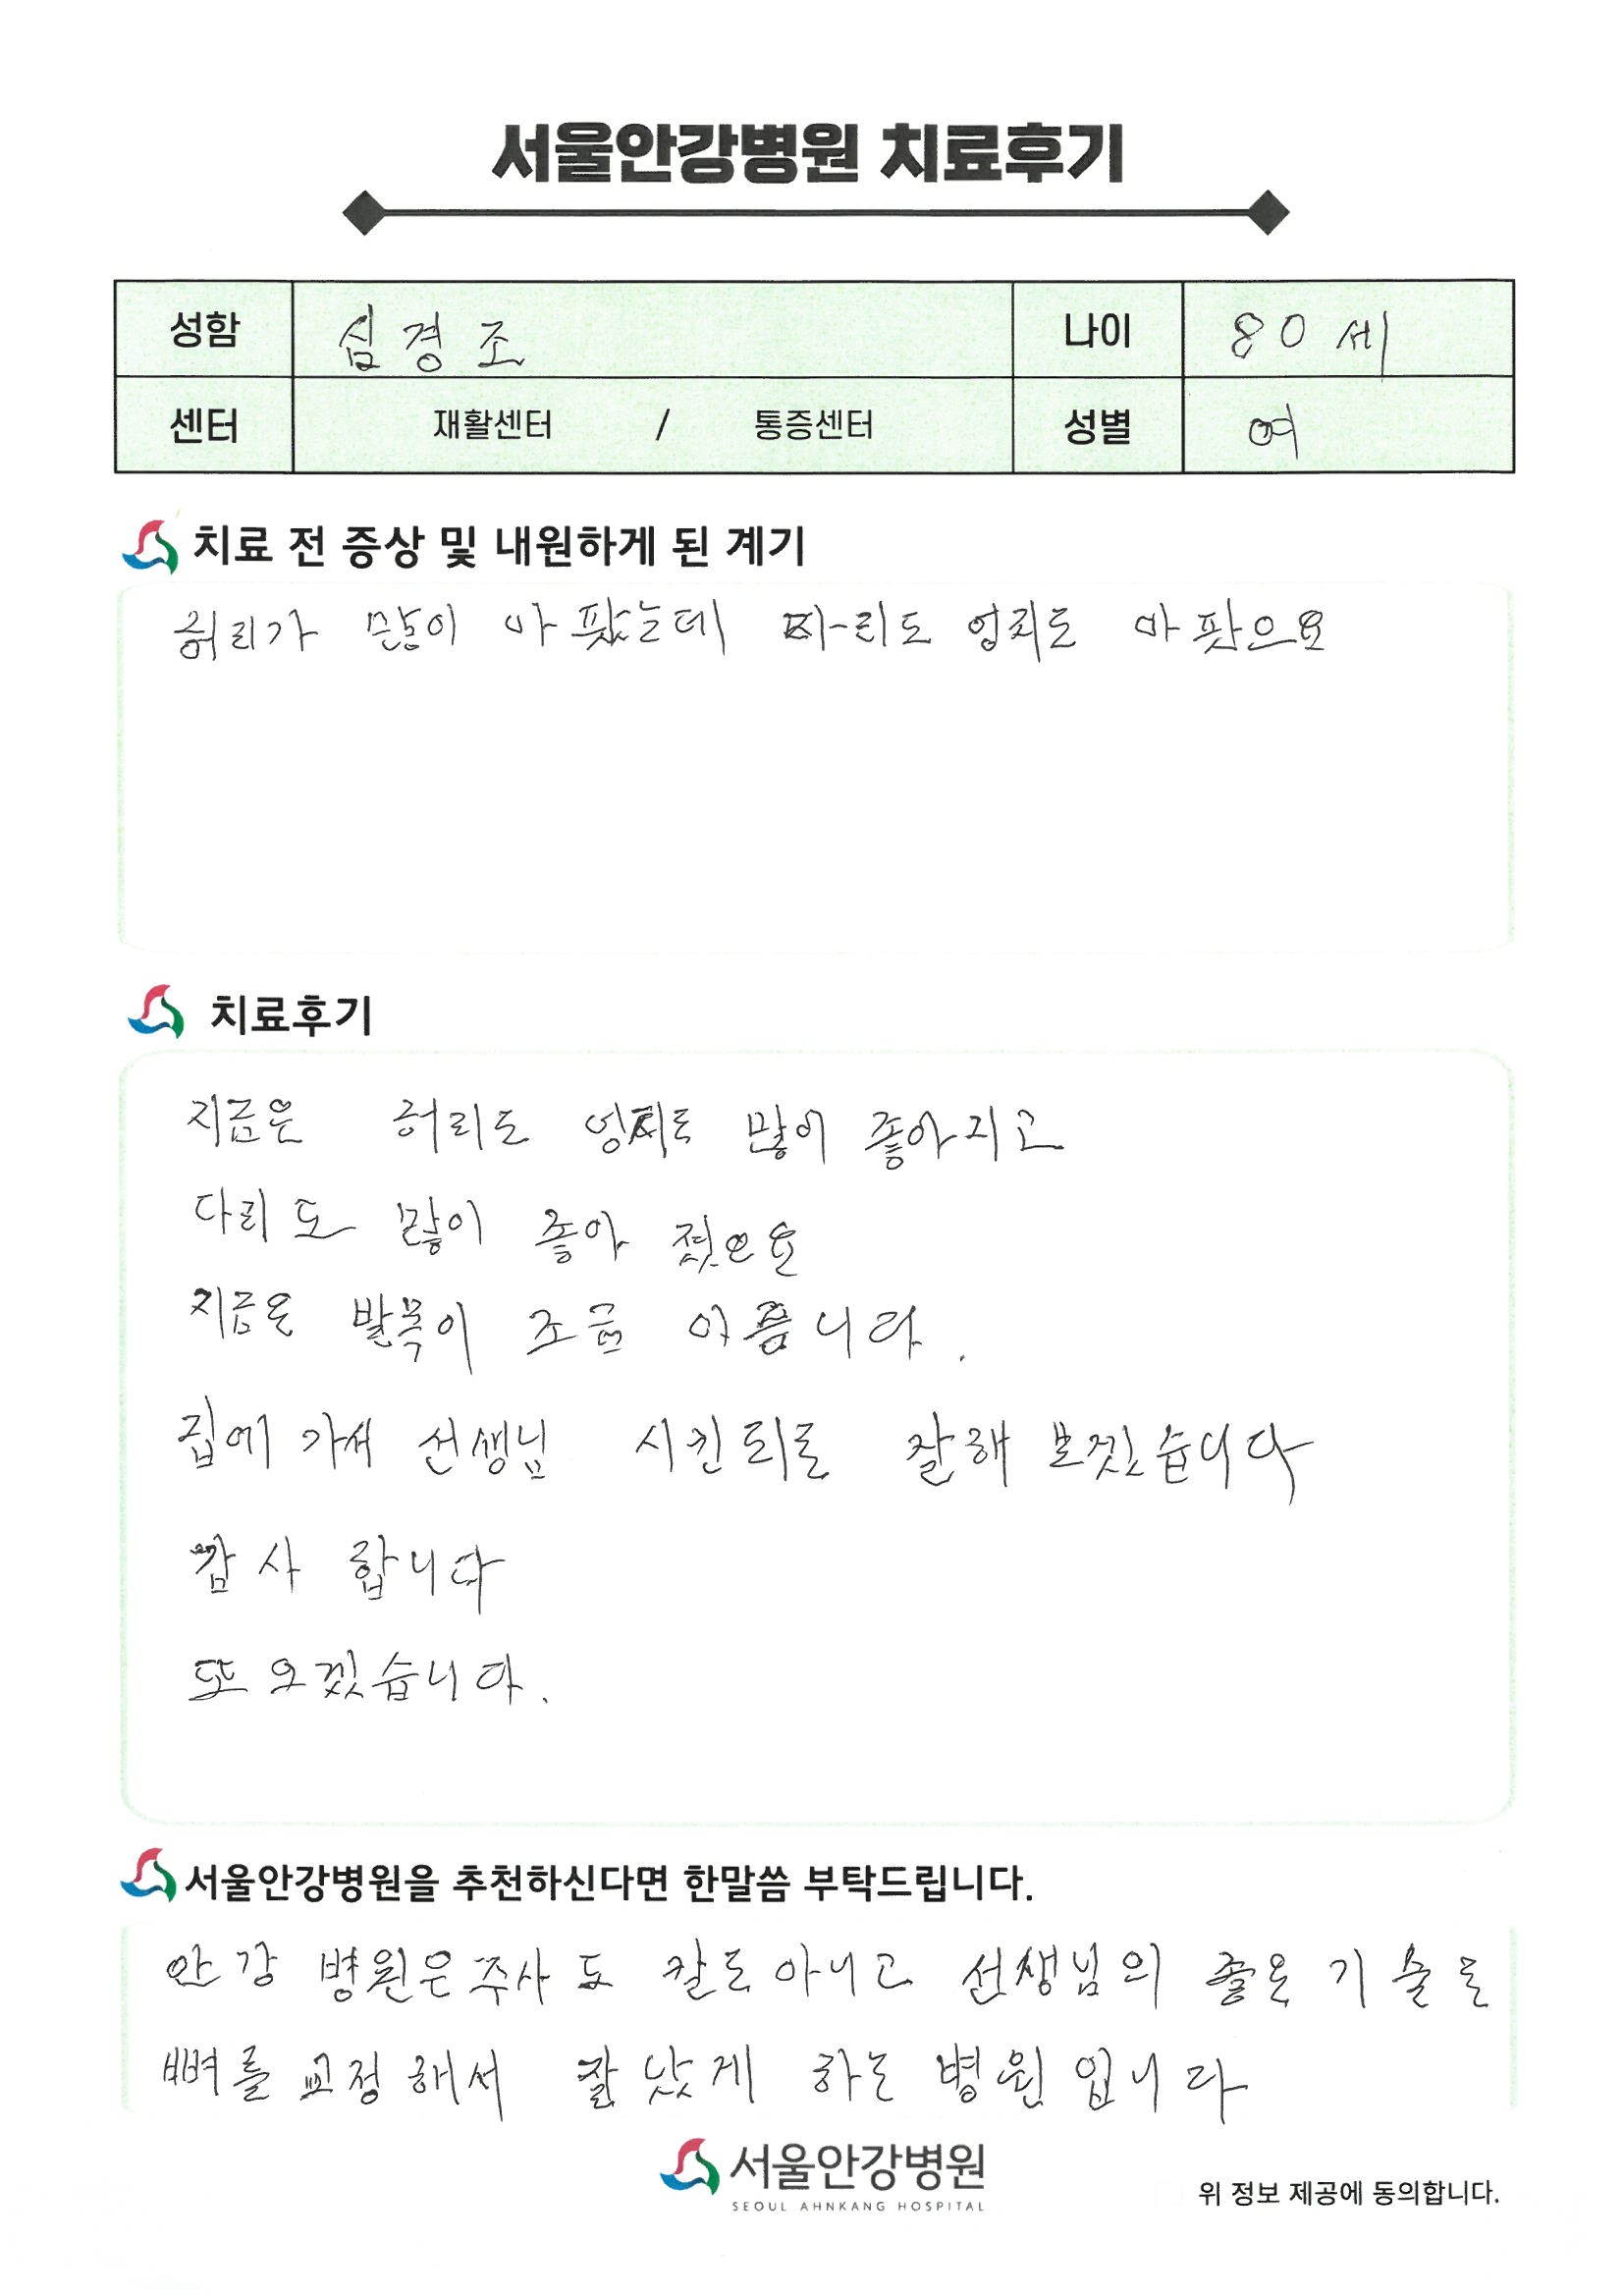 서울안강병원 치료후기
성함 심경조 나이 80세
센터 재활센터 / 통증센터 성별 여
치료 전 증상 및 내원하게 된 계기
허리가 많이 아팠는데 다리도 엉치도 아팟으요
치료후기
지금은 허리도 엉치도 많이 좋아지고
다리도 많이 좋아 졌으요
지금은 발목이 조금 아픔니다.
집에 가서 선생님 시킨 되로 잘해 보겠습니다
감사 합니다
또 오겠습니다.
서울안강병원을 추천하신다면 한말씀 부탁드립니다.
안강 병원은 주사도 칼도 아니고 선생님의 좋은 기술로
뼈를 교정해서 잘 낫게 하는 병원입니다
서울안강병원
SEOUL AHNKANG HOSPITAL
위 정보 제공에 동의합니다.